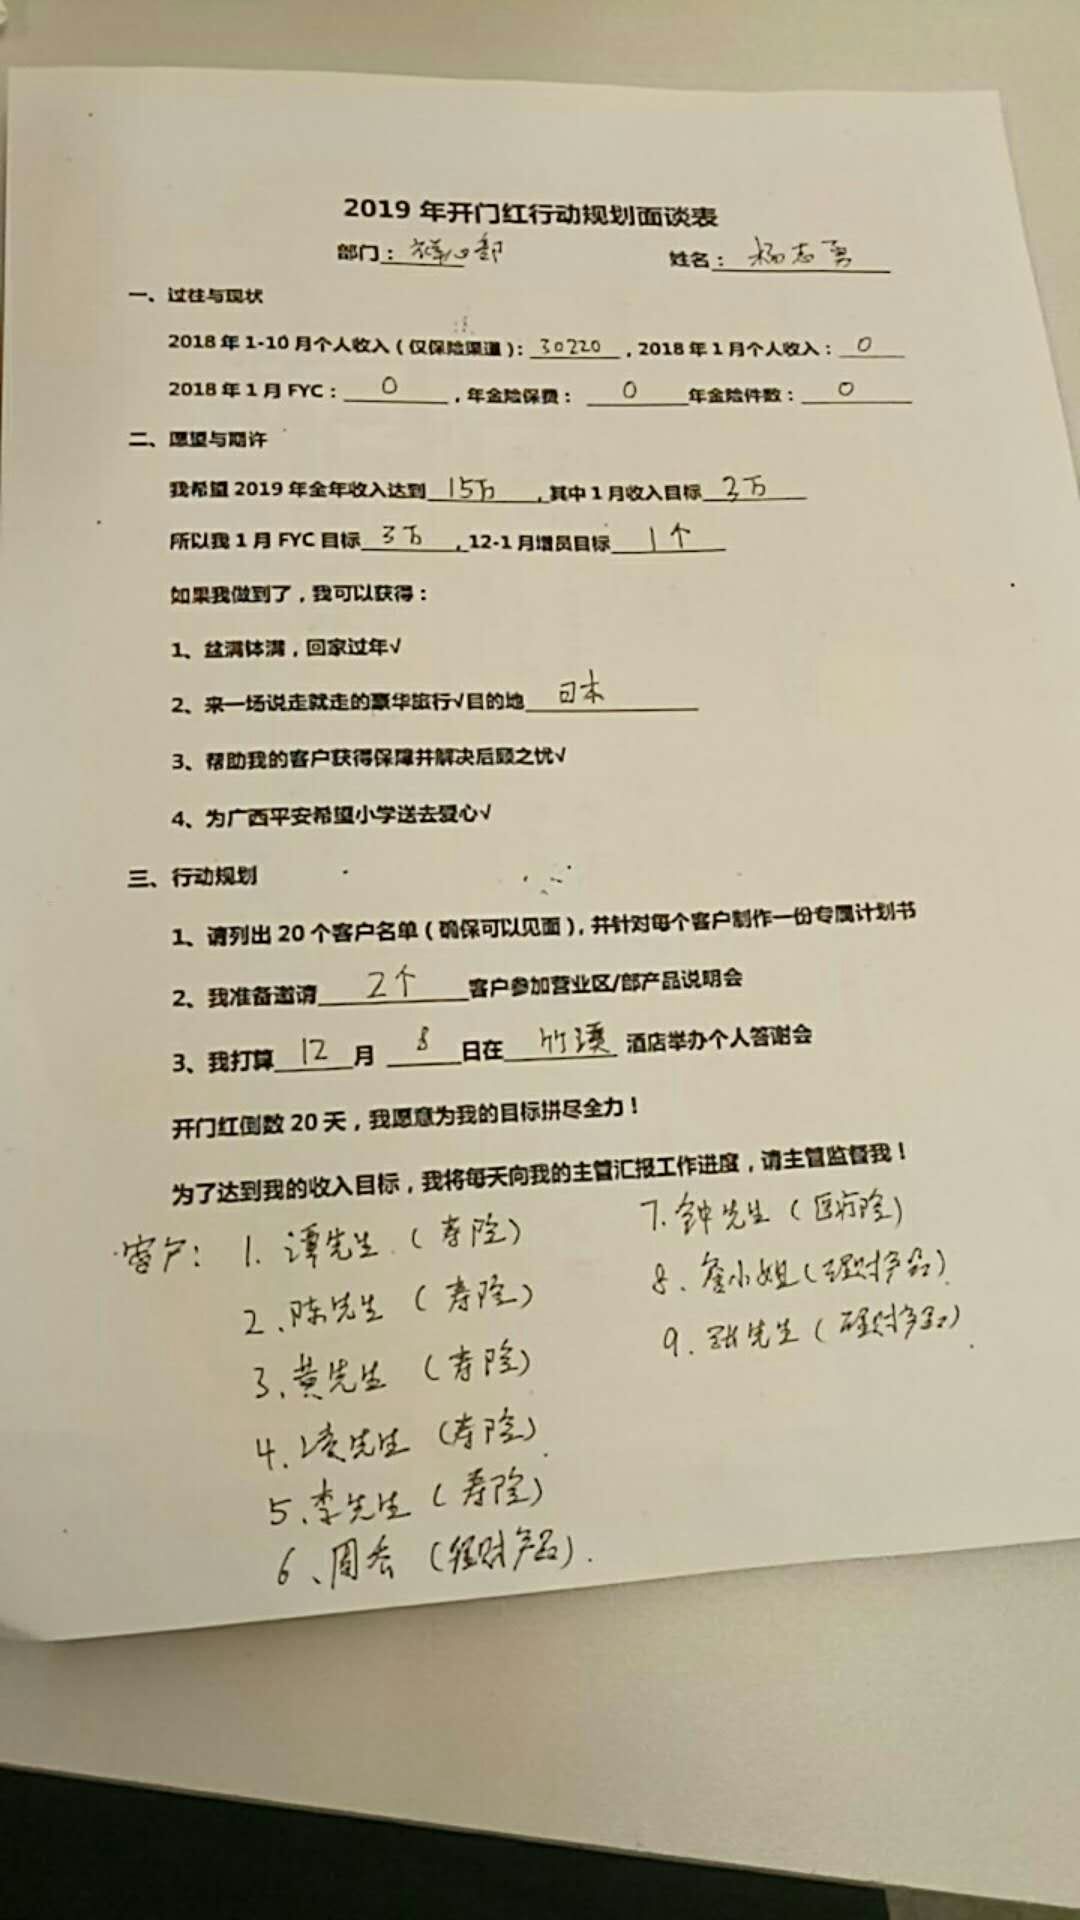 2019 年开门红行动规划面谈表
部门：心部 姓名：杨志勇
一、过往与现状
2018 年 1-10 月个人收入（仅保险渠道）：30220，2018 年 1 月个人收入：0
2018 年 1 月 FYC：0，年金险保费：0 年金险件数：0
二、愿望与期许
我希望 2019 年全年收入达到15万，其中 1 月收入目标3万
所以我 1 月 FYC 目标3万，12-1 月增员目标1个
如果我做到了，我可以获得：
1、盆满钵满，回家过年√
2、来一场说走就走的豪华旅行√目的地日本
3、帮助我的客户获得保障并解决后顾之忧√
4、为广西平安希望小学送去爱心√
三、行动规划
1、请列出 20 个客户名单（确保可以见面），并针对每个客户制作一份专属计划书
2、我准备邀请2个客户参加营业区/部产品说明会
3、我打算12月8日在竹溪酒店举办个人答谢会
开门红倒数 20 天，我愿意为我的目标拼尽全力！
为了达到我的收入目标，我将每天向我的主管汇报工作进度，请主管监督我！
客户：1.谭先生（寿险）
2、陈先生（寿险）
3、黄先生（寿险）
4、凌先生（寿险）
5、李先生（寿险）
6、周（理财产品）.
7.钟先生（医疗险）
8、詹小姐（理财产品）
9.张先生（理财产品）